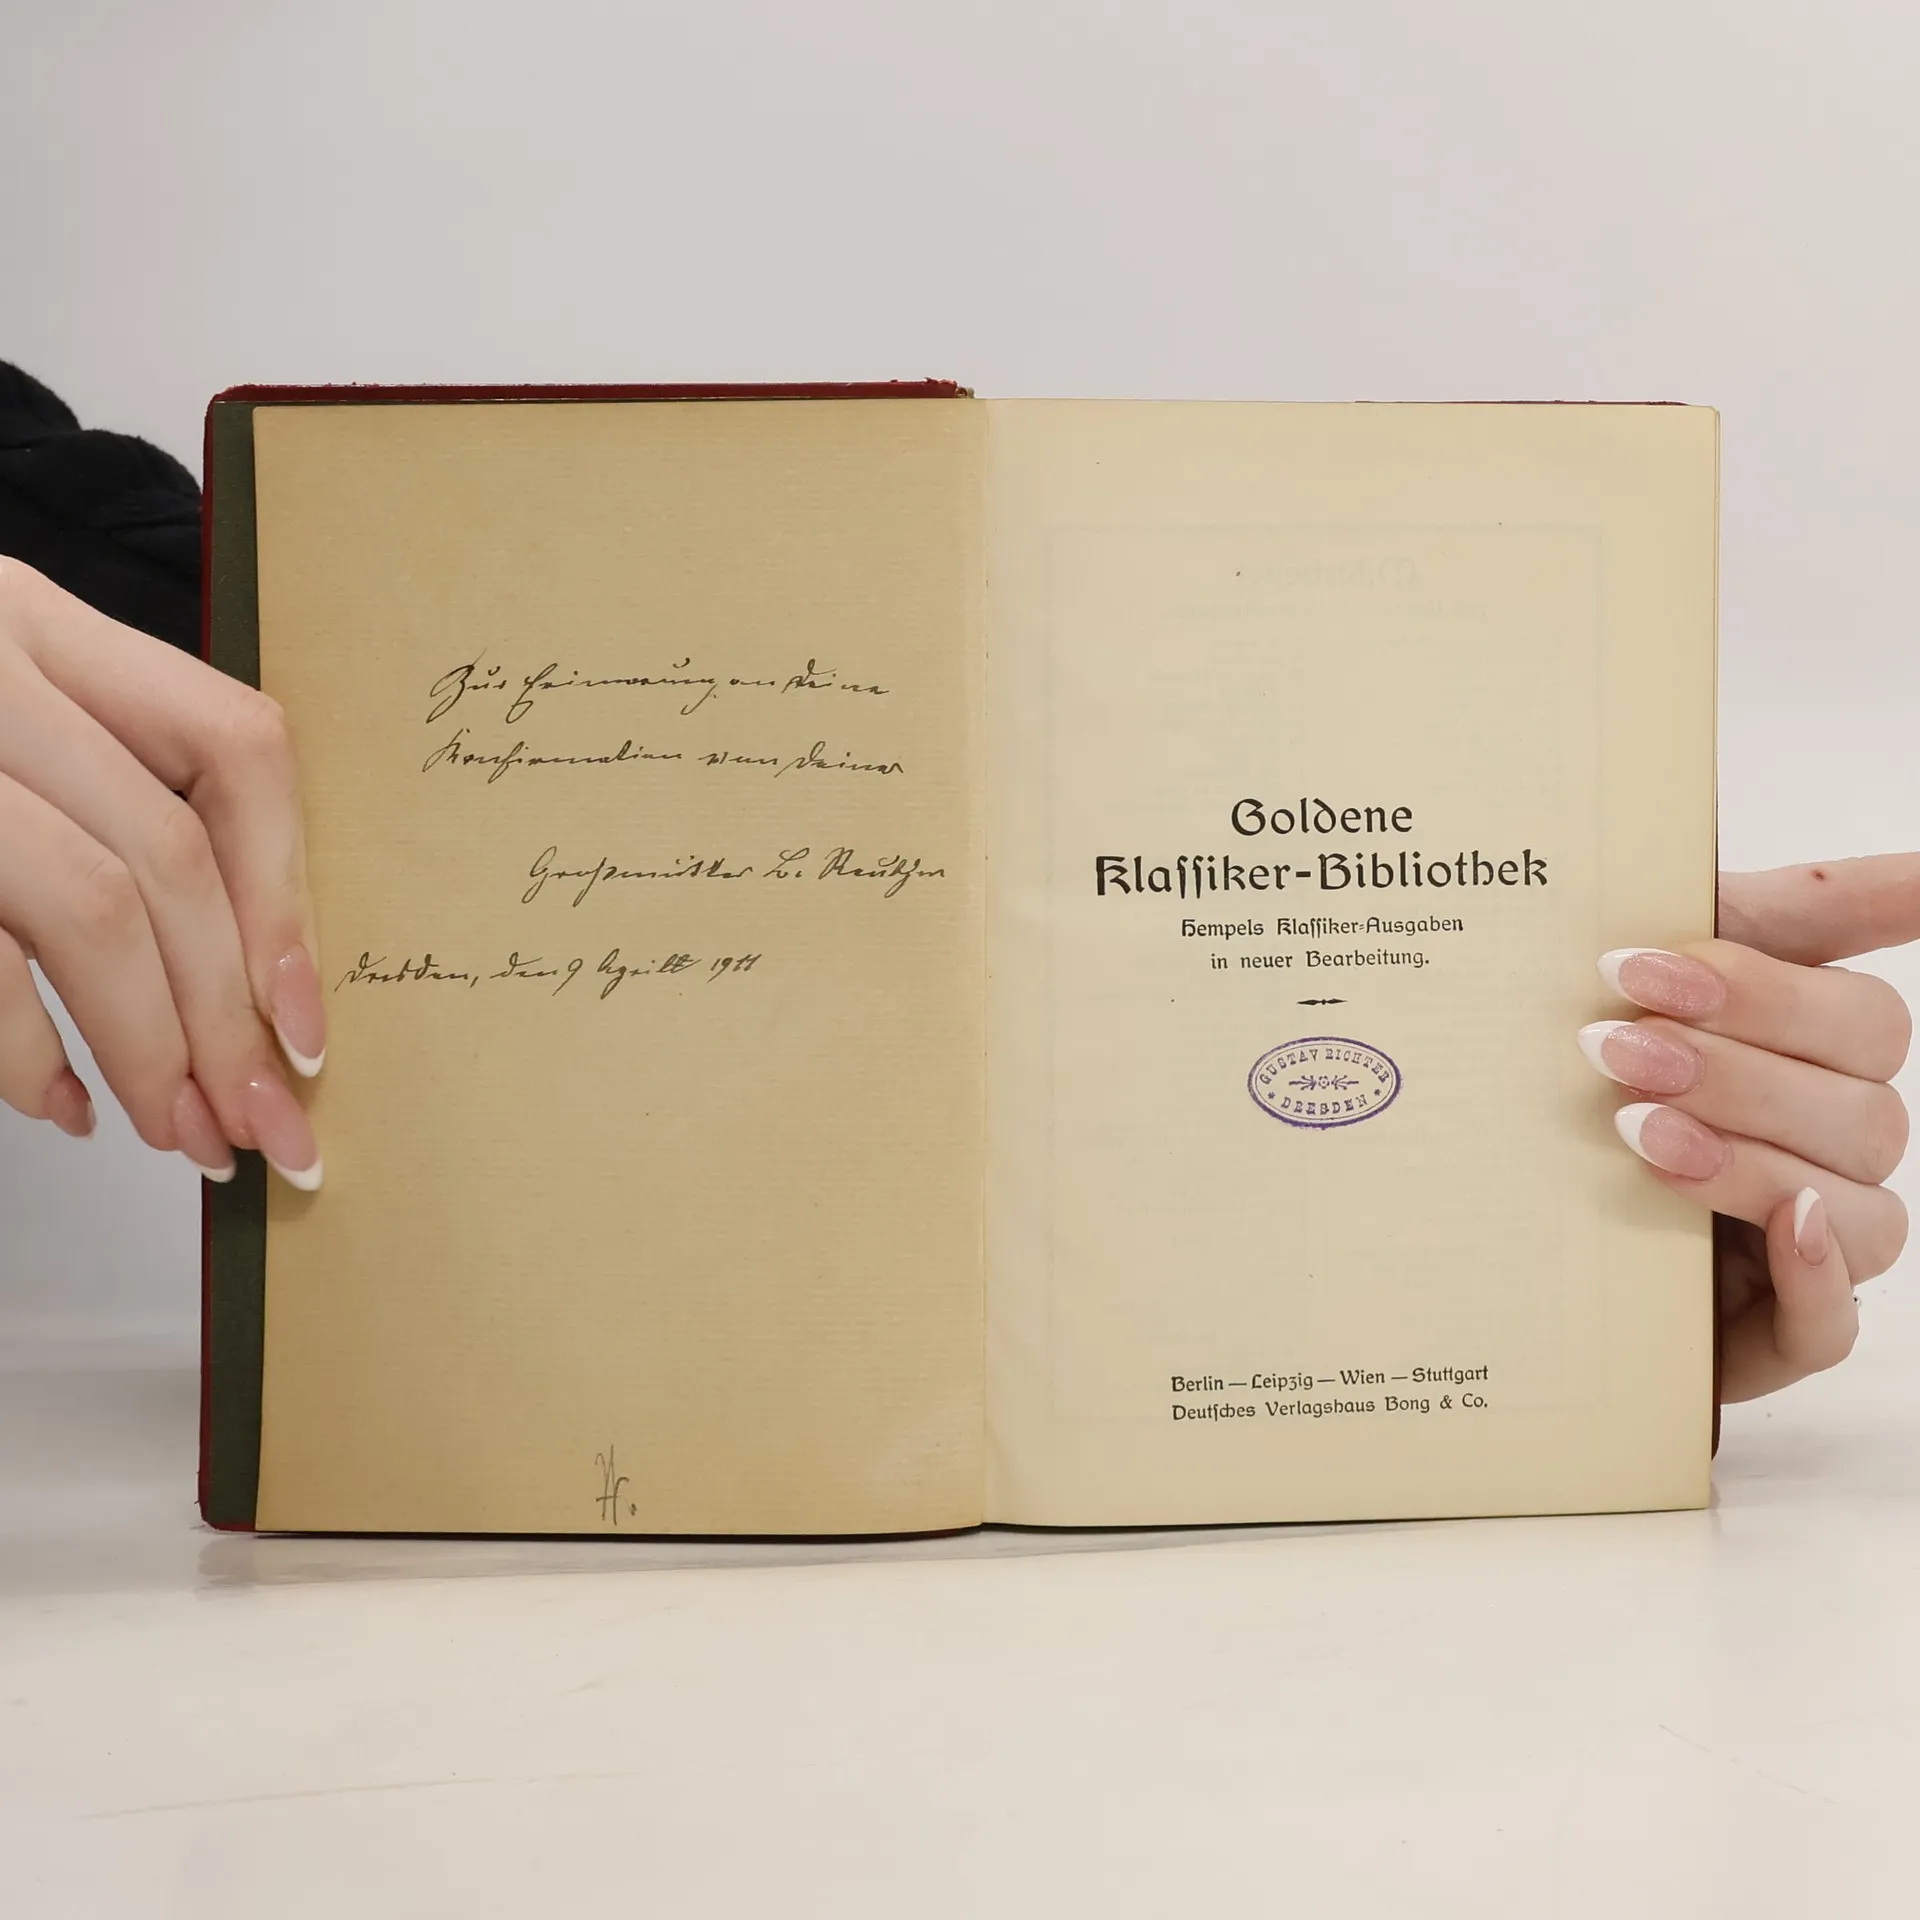 Zur Erinnerung an Deine
Konfirmation von Deiner
Großmutter L.
Dresden, den 9 Aprill 1911
Goldene
Klaſſiker-Bibliothek
Hempels Klaſſiker-Ausgaben
in neuer Bearbeitung.
GUSTAV RICHTER
DRESDEN
Berlin — Leipzig — Wien — Stuttgart
Deutſches Verlagshaus Bong & Co.